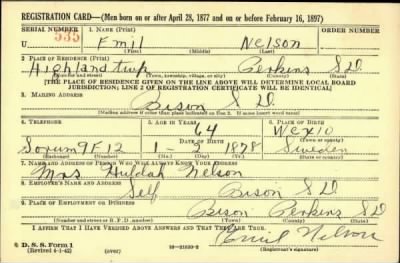 REGISTRATION CARD—(Men born on or after April 28, 1877 and on or before February 16, 1897)
SERIAL NUMBER 1. NAME (Print) ORDER NUMBER
U 535 Emil Nelson
(First) (Middle) (Last)
2. PLACE OF RESIDENCE (Print)
Highland twp Perkins S D
(Number and street) (Town, township, village, or city) (County) (State)
[THE PLACE OF RESIDENCE GIVEN ON THE LINE ABOVE WILL DETERMINE LOCAL BOARD
JURISDICTION; LINE 2 OF REGISTRATION CERTIFICATE WILL BE IDENTICAL]
3. MAILING ADDRESS
Bison S D.
[Mailing address if other than place indicated on line 2. If same insert word same]
4. TELEPHONE 5. AGE IN YEARS 6. PLACE OF BIRTH
64 Wexio
DATE OF BIRTH (Town or county)
Sorum 9F12 1878 Sweden
(Exchange) (Number) (Mo.) (Day) (Yr.) (State or country)
7. NAME AND ADDRESS OF PERSON WHO WILL ALWAYS KNOW YOUR ADDRESS
Mrs Huldah Nelson
8. EMPLOYER'S NAME AND ADDRESS
Self Bison S D
9. PLACE OF EMPLOYMENT OR BUSINESS
Bison Perkins S D
(Number and street or R. F. D. number) (Town) (County) (State)
I AFFIRM THAT I HAVE VERIFIED ABOVE ANSWERS AND THAT THEY ARE TRUE.
Emil Nelson
D. S. S. Form 1
(Revised 4-1-42) (over) 16—21630-2 (Registrant's signature)